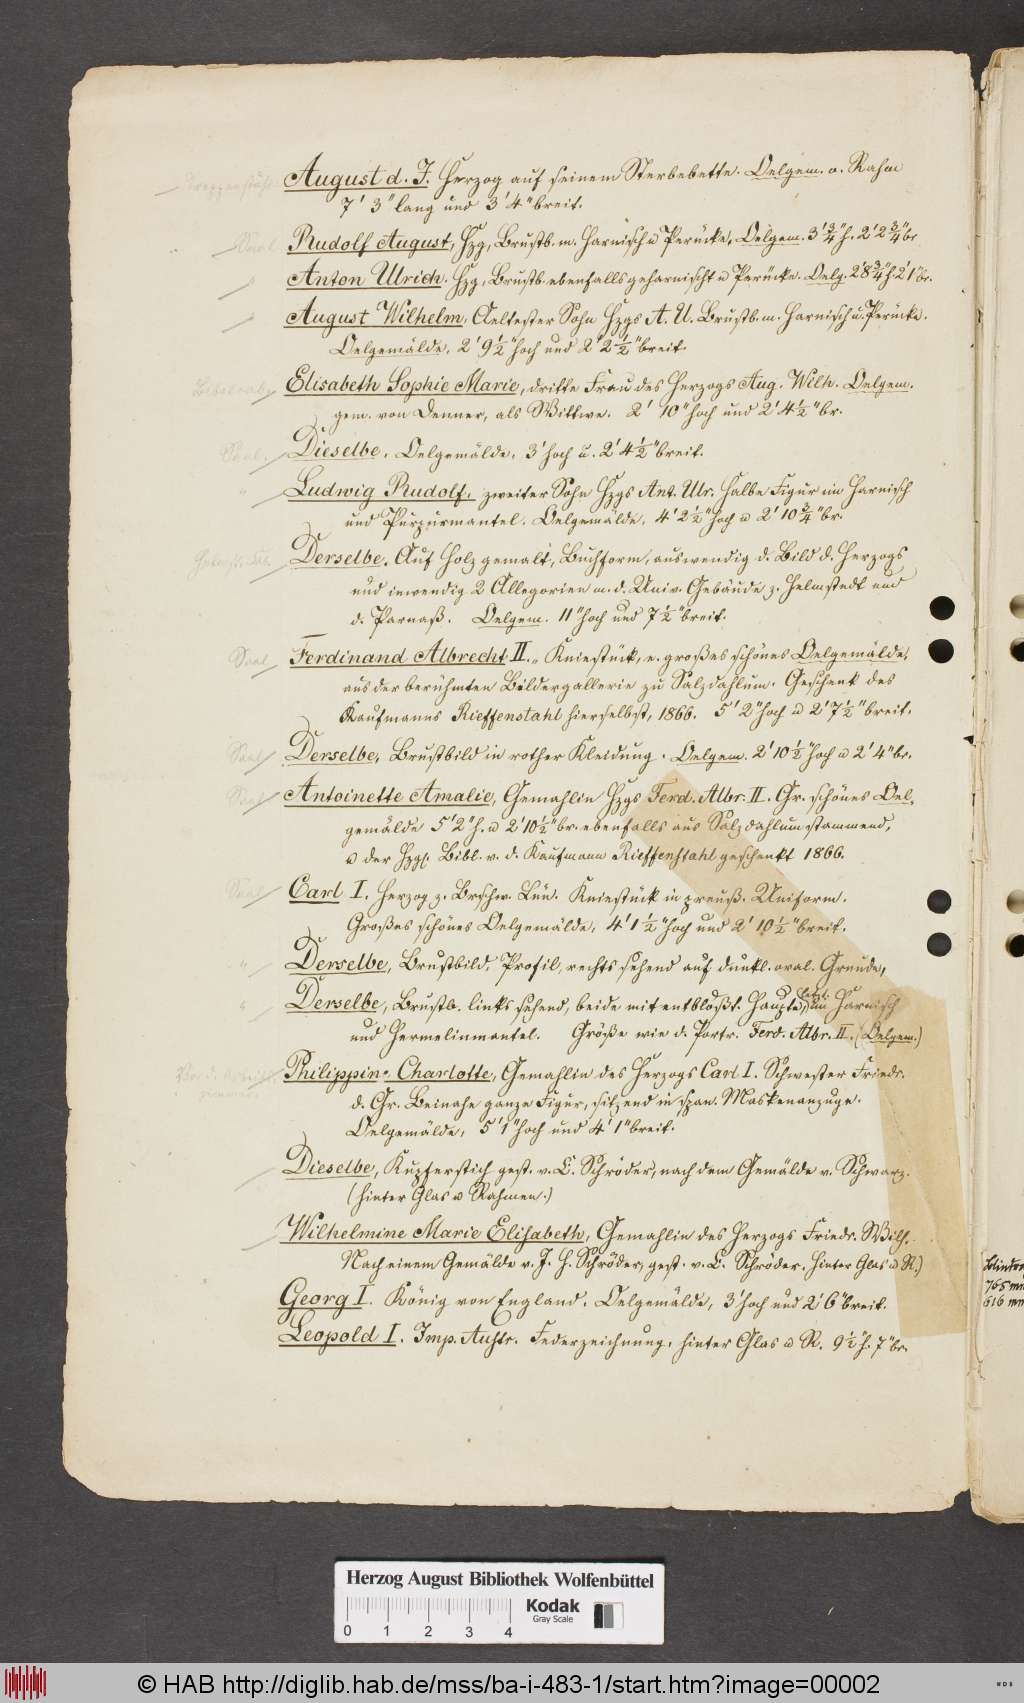 August d. J. Herzog auf seinem Sterbebette. Oelgem. o. Rahm
7' 3" lang und 3' 4" breit.
Saal Rudolf August, Hzg, Brustb. m. Harnisch u Perücke, Oelgem. 3' 3/4" h. 2' 2 3/4" br.
" Anton Ulrich. Hzg, Brustb. ebenfalls geharnischt u Perücke. Oelg. 2' 8 3/4" h. 2' 1" br.
" August Wilhelm, Aeltester Sohn Hzgs A. U. Brustb. m. Harnisch u. Perücke.
Oelgemälde, 2' 9 1/2" hoch und 2' 2 1/2" breit.
Elisabeth Sophie Marie, dritte Frau des Herzogs Aug. Wilh. Oelgem.
gem. von Denner, als Wittwe. 2' 10" hoch und 2' 4 1/2" br.
Saal. Dieselbe. Oelgemälde. 3' hoch u. 2' 4 1/2" breit.
" Ludwig Rudolf, zweiter Sohn Hzgs Ant. Ulr. Halbe Figur im Harnisch
und Purpurmantel. Oelgemälde, 4' 2 1/2" hoch u 2' 10 3/4" br.
Derselbe. Auf Holz gemalt, Buchform, auswendig d. Bild d. Herzogs
und inwendig 2 Allegorien m. d. Univ. Gebäude z. Helmstedt und
d. Parnaß. Oelgem. 11" hoch und 7 1/2" breit.
Saal Ferdinand Albrecht II. Kniestück, e. großes schönes Oelgemälde,
aus der berühmten Bildergallerie zu Salzdahlum. Geschenk des
Kaufmanns Rieffenstahl hierselbst, 1866. 5' 2" hoch u 2' 7 1/2" breit.
Saal Derselbe, Brustbild in rother Kleidung. Oelgem. 2' 10 1/2" hoch u 2' 4" br.
Saal Antoinette Amalie, Gemahlin Hzgs Ferd. Albr. II. Gr. schönes Oel-
gemälde 5' 2" h. u 2' 10 1/2" br. ebenfalls aus Salzdahlum stammend,
u der Hzgl. Bibl. v. d. Kaufmann Rieffenstahl geschenkt 1866.
Saal Carl I. Herzog z. Brschw. Lün. Kniestück in preuß. Uniform.
Großes schönes Oelgemälde, 4' 1 1/2" hoch und 2' 10 1/2" breit.
" Derselbe, Brustbild, Profil, rechts sehend auf dunkl. oval. Grunde,
" Derselbe, Brustb. links sehend, beide mit entblößt. Haupte, letzt. im Harnisch
und Hermelinmantel. Größe wie d. Portr. Ferd. Albr. II. (Oelgem.)
Philippine Charlotte, Gemahlin des Herzogs Carl I. Schwester Friedr.
d. Gr. Beinahe ganze Figur, sitzend in span. Maskenanzuge.
Oelgemälde, 5' 1" hoch und 4' 1" breit.
Dieselbe, Kupferstich gest. v. C. Schröder, nach dem Gemälde v. Schwarz.
(hinter Glas u Rahmen.)
Wilhelmine Marie Elisabeth, Gemahlin des Herzogs Friedr. Wilh.
Nach einem Gemälde v. J. H. Schröder, gest. v. C. Schröder. hinter Glas u R.)
Georg I. König von England. Oelgemälde, 3' hoch und 2' 6" breit.
Leopold I. Imp. Austr. Federzeichnung, hinter Glas u R. 9 1/2" h. 7" br.
Herzog August Bibliothek Wolfenbüttel
Kodak
Gray Scale
0 1 2 3 4
© HAB http://diglib.hab.de/mss/ba-i-483-1/start.htm?image=00002